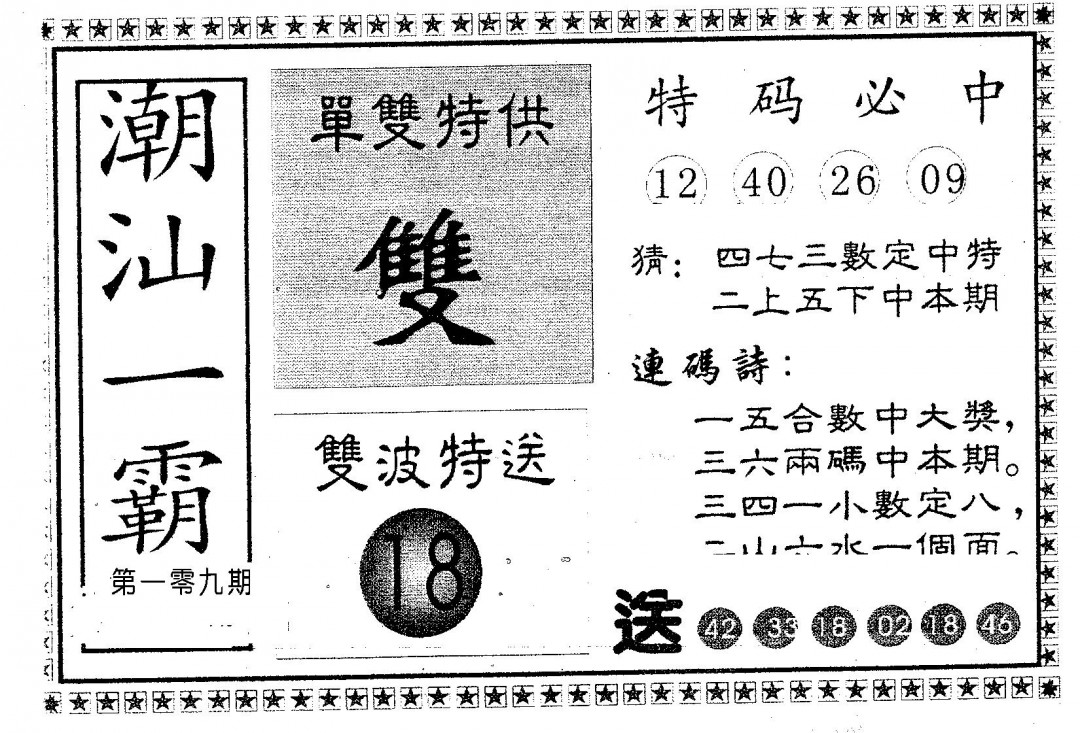 潮汕一霸
第一零九期
單雙特供
雙
雙波特送
18
特码必中
12 40 26 09
猜：四七三數定中特
二上五下中本期
連碼詩：
一五合數中大獎，
三六兩碼中本期。
三四一小數定八，
二山六水一個面。
送 42 33 18 02 18 46